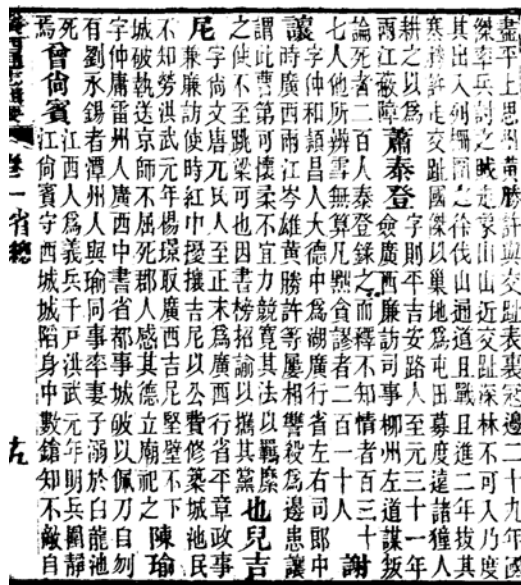 盡平上思州黃勝許與交趾表裏寇邊二十九年國
傑率兵討之賊走象山山近交趾深林不可入乃度
其出入列柵圍之徐伐山通道且戰且進二年拔其
寨勝許走交趾國傑以巢地為屯田募度遠諸獞人
耕之以為
兩江蔽障
蕭泰登
字則平吉安路人至元三十一年
僉廣西廉訪司事柳州左道謀叛
論死者二百人泰登錄之而釋不知情者百三十
七人他所辨雪無算凡黜貪謬者二百一十人
謝
讓
字仲和頴昌人大德中為湖廣行省左右司郎中
時廣西兩江岑雄黃勝許等屢相讐殺為邊患讓
謂此曹第可懷柔不宜力競寬其法以羈縻
之使不至跳梁可也因書榜招諭以攜其黨
也兒吉
尾
字尚文唐兀氏人至正末為廣西行省平章政事
兼廉訪使時紅巾擾攘吉尾以公費修築城池民
不知勞洪武元年楊璟取廣西吉尼堅壁不下
城破執送京師不屈死郡人感其德立廟祀之
陳瑜
字仲庸雷州人廣西中書省都事城破以佩刀自刎
有劉永錫者潭州人與瑜同事率妻子溺於白龍池
焉
曾尚賓
江西人為義兵千戶洪武元年明兵圍靜
江尚賓守西城城陷身中數鎗知不敵自
卷一省總
十九